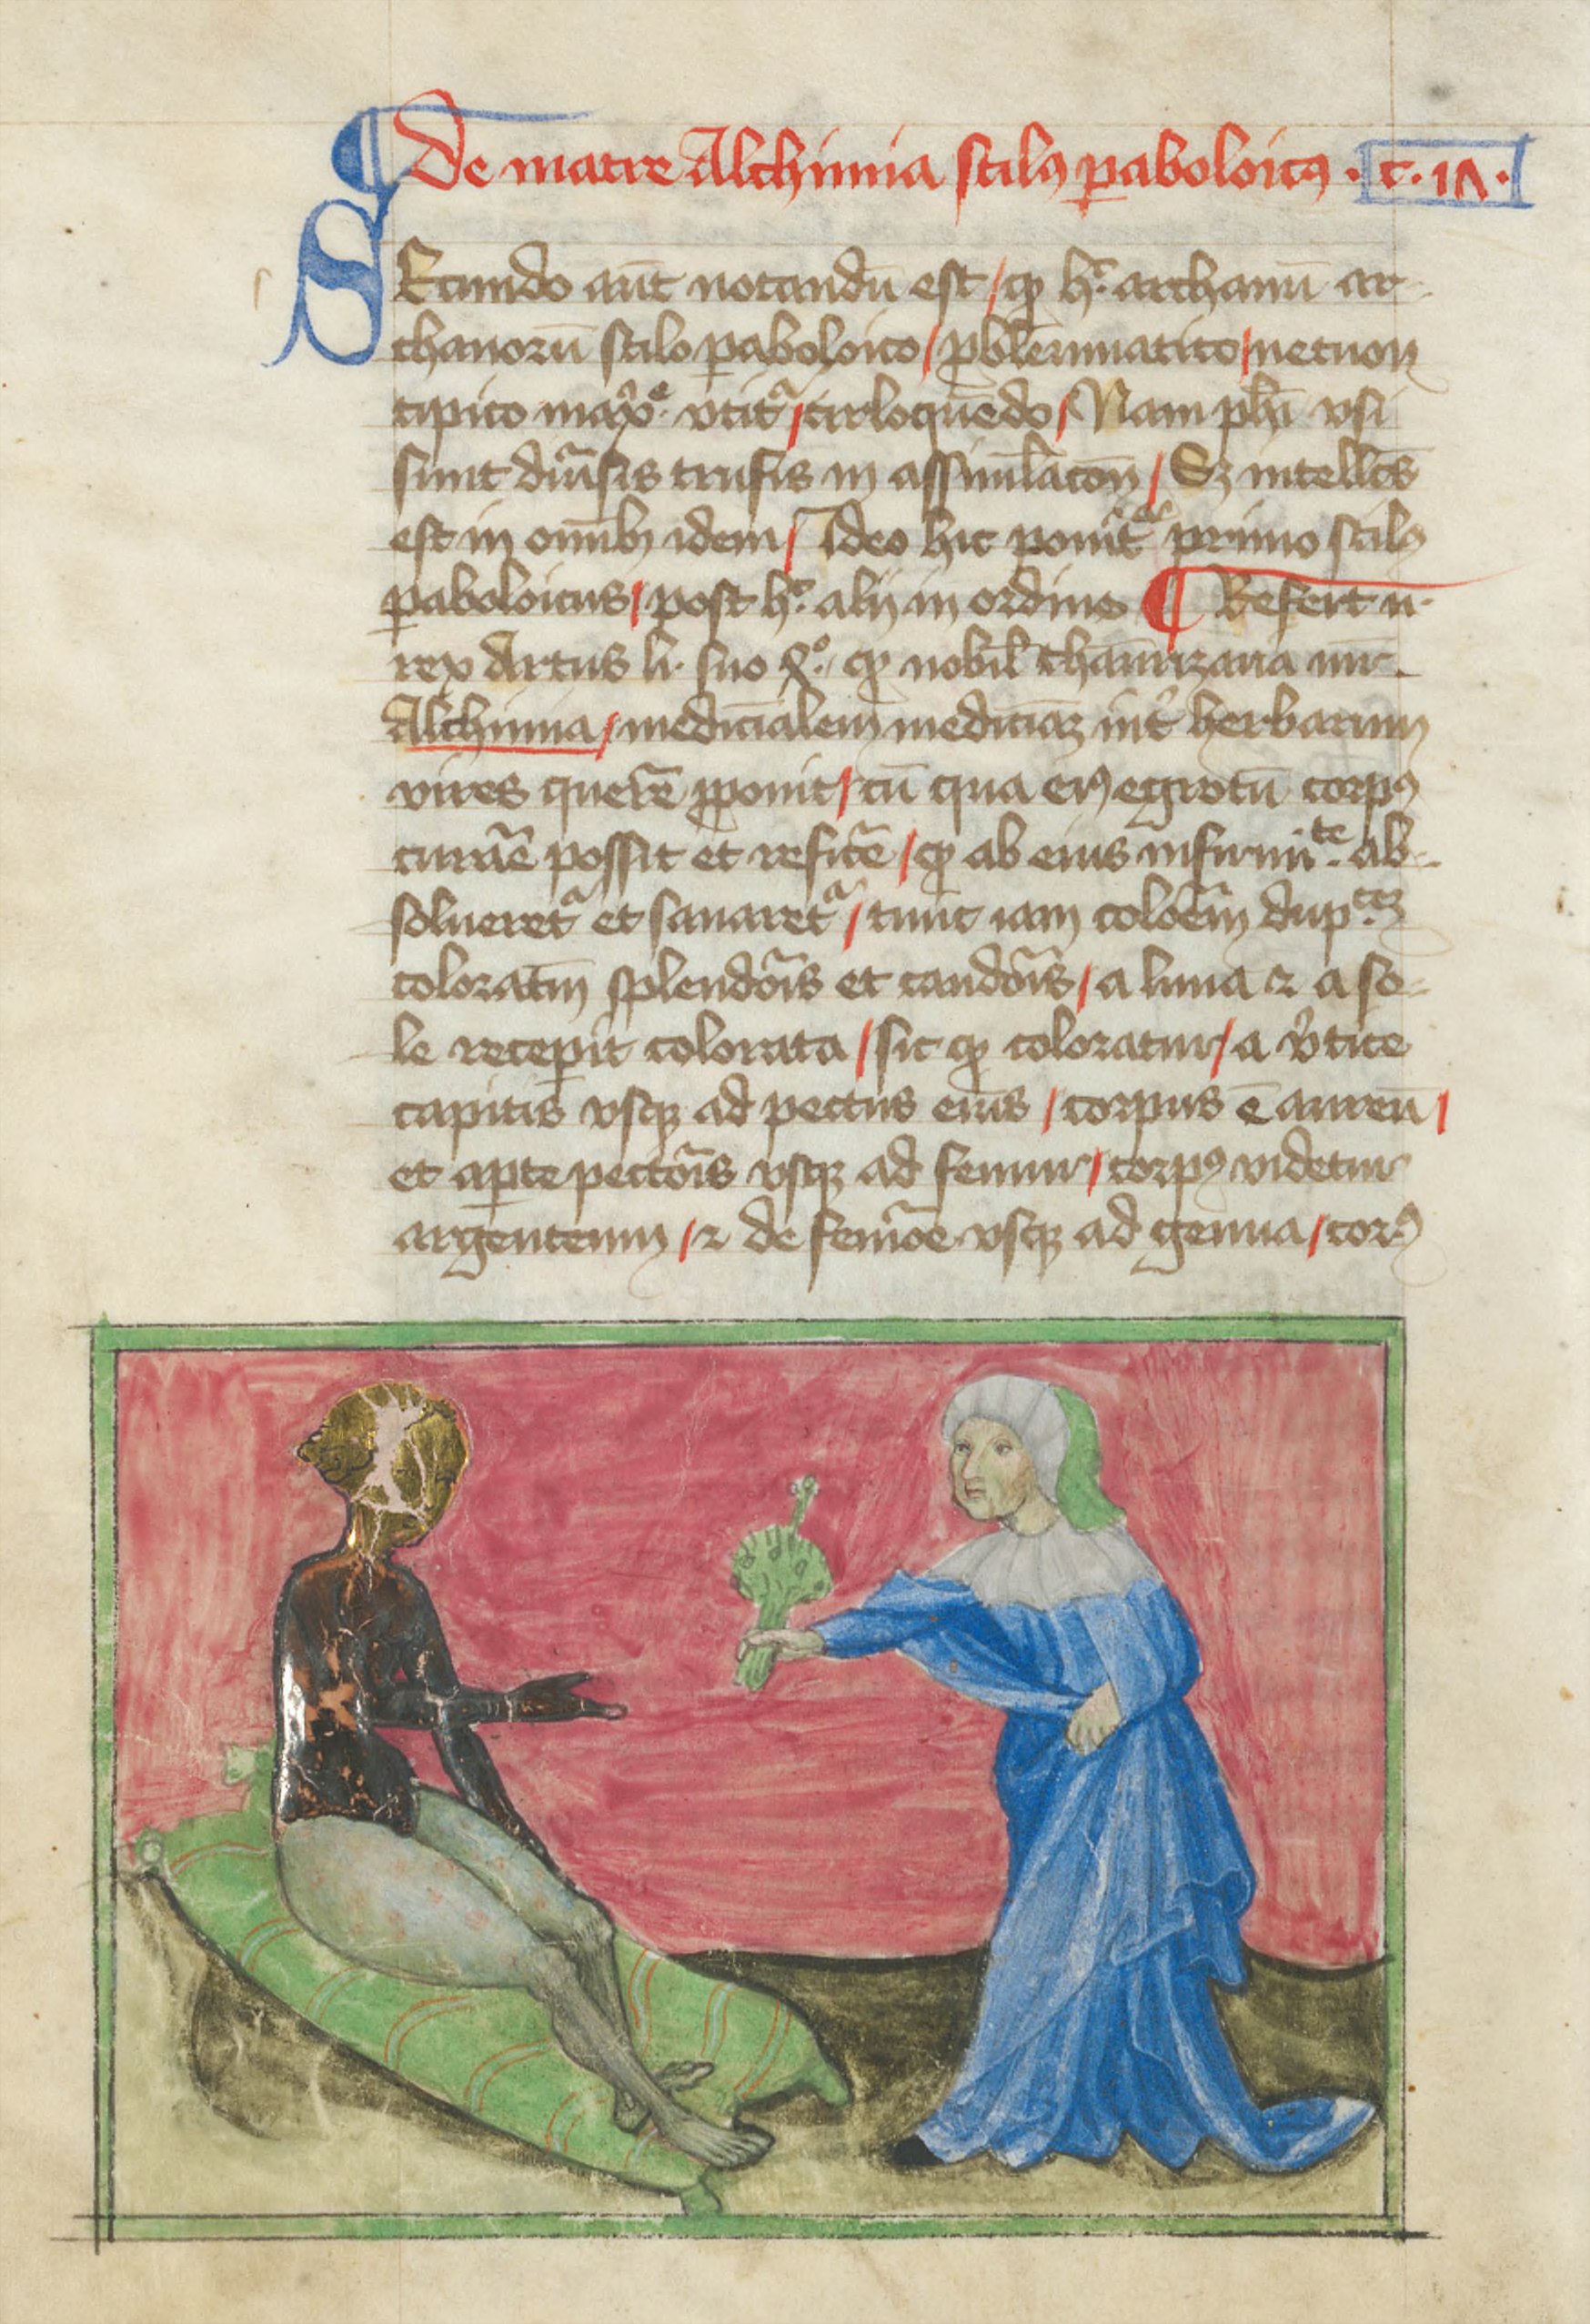 De matre Alchimia stilꝰ ꝑaboloicꝰ · c · 1ʌ ·
SEcundo aūt notandū est / ꝙ hͦ · archanū ar-
chanorū stilo ꝑaboloico / ꝓblēmmatico / necnon
tipico maxͤ · vtitᷓ / cirloquēdo / Nam phī vsi
sunt diũsis trufis in assimilacōn / Sꝫ intellcs̄
est in omībꝫ idem / Ideo hic ponit᷑ primo stilꝰ
ꝑaboloicus / post hͦ · alij in ordine ¶ Refert n ·
rex Artus li · suo xͦ · ꝙ nobil
Alchimia / medicīalem medicinaꝫ int̓ herbarum
vires querē ꝓponit / cū qua eiꝰ egrotū corpꝰ
curãe possit et reficē / ꝙ ab eius infirmiᵗᵉ · ab-
soluere᷑t et sanare᷑t / tunc iam coloēm dup
coloratā splendōis et candōis / a luna ⁊ a so-
le recepit colorata / sic ꝙ coloratur / a v̓tice
capitis vsqꝫ ad pectus eius / corpus ē aureū /
et aꝑte pectōis vsqꝫ ad femur / corpꝰ videtur
argenteum / ⁊ de femōe vsqꝫ ad genua / corꝰ